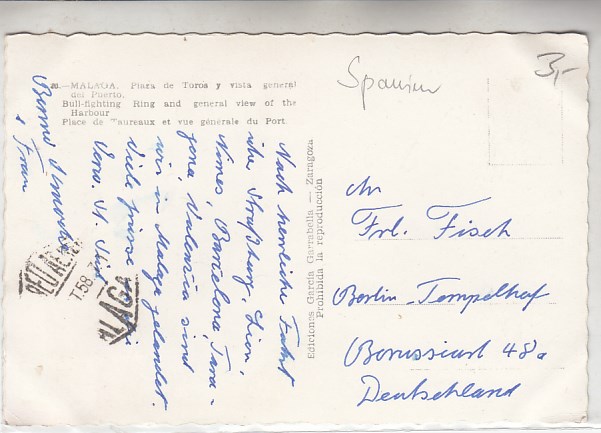 28.—MALAGA. Plaza de Toros y vista general
del Puerto.
Bull-fighting Ring and general view of the
Harbour
Place de Taureaux et vue générale du Port.
Spanien
3,-
Nach herrlicher Fahrt
über Straßburg, Lion,
Nimes, Barcelona, Tara-
gona, Valencia sind
wir in Malaga gelandet.
Viele Grüsse
u Frau
Ediciones Garcia Garrabella — Zaragoza
Prohibida la reproducción
An
Frl. Fisch
Berlin-Tempelhof
Borussiastr 48a
Deutschland
58
LAGA